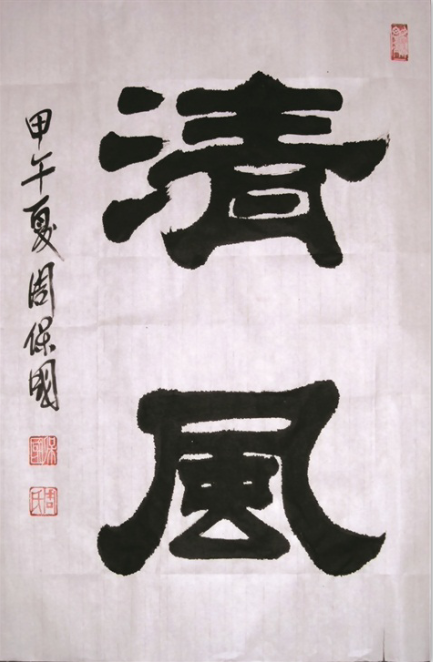 清風
甲午夏周保國
保國
周氏